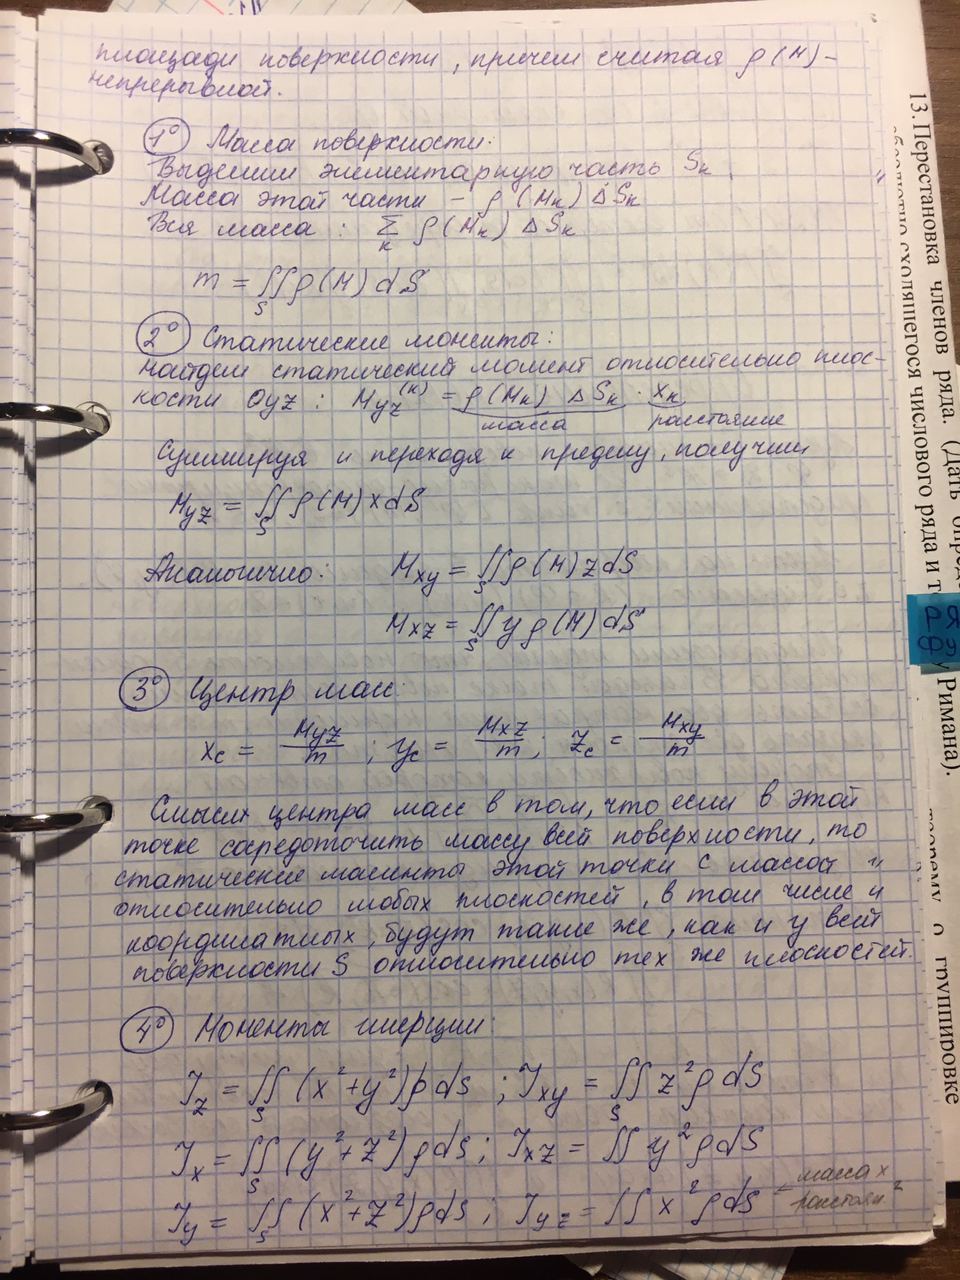 площади поверхности, причем считая ρ(M) –
непрерывной.
1° Масса поверхности:
Выделим элементарную часть Sₖ
Масса этой части – ρ(Mₖ) ΔSₖ
Вся масса : Σₖ ρ(Mₖ) ΔSₖ
m = ∬_S ρ(M) dS
2° Статические моменты:
Найдем статический момент относительно плос-
кости Oyz : M_yz^(к) = ρ(Mₖ) ΔSₖ · xₖ
масса расстояние
Суммируя и переходя к пределу, получим
M_yz = ∬_S ρ(M) x dS
Аналогично: M_xy = ∬_S ρ(M) z dS
M_xz = ∬_S y ρ(M) dS
3° Центр масс:
x_c = M_yz/m ; y_c = M_xz/m ; z_c = M_xy/m
Смысл центра масс в том, что если в этой
точке сосредоточить массу всей поверхности, то
статические моменты этой точки с массой
относительно любых плоскостей, в том числе и
координатных, будут такие же, как и у всей
поверхности S относительно тех же плоскостей.
4° Моменты инерции:
J_z = ∬_S (x²+y²) ρ dS ; J_xy = ∬_S z² ρ dS
J_x = ∬_S (y²+z²) ρ dS ; J_xz = ∬ y² ρ dS
J_y = ∬_S (x²+z²) ρ dS ; J_yz = ∬ x² ρ dS
← масса x
расстоян.²
13. Перестановка членов ряда. (Дать опреде
сходящегося числового ряда и т
у Римана).
теорему о группировке
РЯ
ФУ